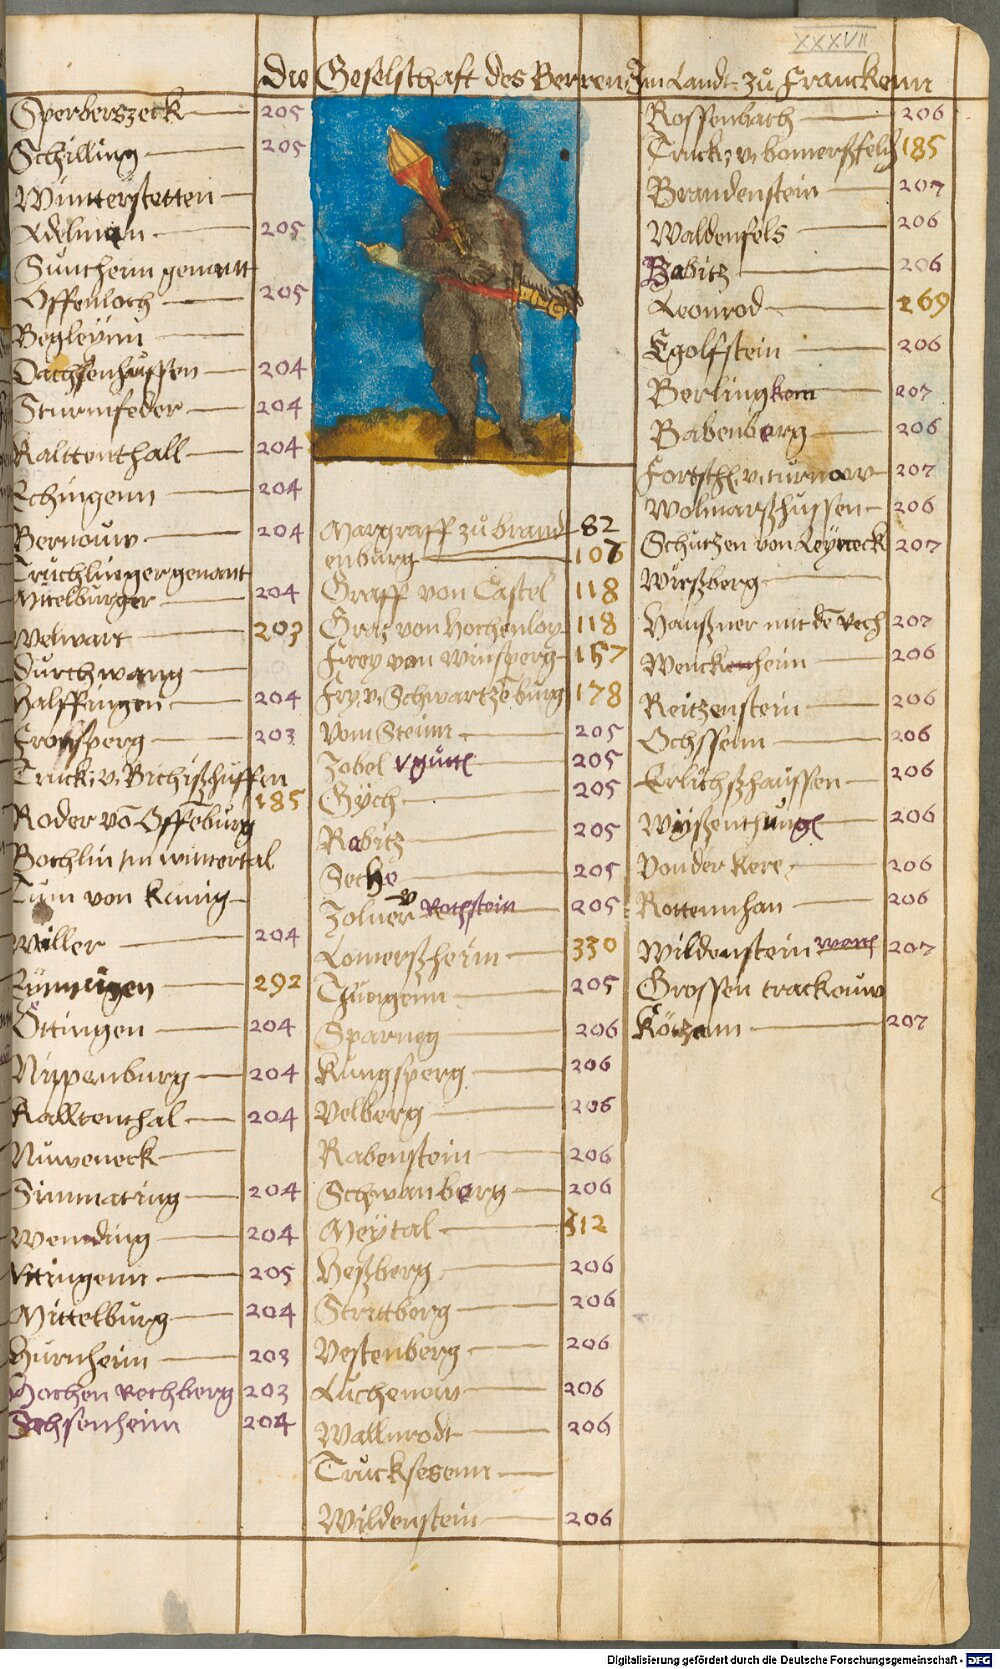 XXXVII
Die Geselschaft des Berren Im Landt zů Franckenn
Sperberszeck 205
Schilling 205
Winterstetten
Adelman 205
Suntheim genantt
Offenloch 205
Begleynn
Dachsenhussen 204
Sturmfeder 204
Kalttenthall 204
Echingenn 204
Bernouw 204
Truchlingergenant
Mitelburger 204
Welwart 203
Durchwang
Halffingen 204
Fronsperg 203
Truck: v. Bichißhussen
185
Roder võ Offẽburg
Bochlin im wintertal
Tum von Kanig
Willer 204
292
Öttingen 204
Nippenburg 204
Kalltenthal 204
Nuweneck
Simmating 204
Wemding 204
Ettingenn 205
Mittelburg 204
Hurnheim 203
Hochen Rechberg 203
Sachsenheim 204
Margraff zů brand 82
enburg 106
Graff von Castel 118
Graf von Hochenloy 118
Frey von Winsperg 157
Fry. v. Schwartzẽburg 178
Vom Steinn 205
Zobel 205
Gych 205
Rabitz 205
Seche 205
Zolner v Rotzstein 205
Lomerßheim 330
Thuengenn 205
Sparneg 206
Kungsperg 206
Velberg 206
Rabenstein 206
Schwanberg 206
Meÿtal 312
Heßberg 206
Strittberg 206
Vestenberg 206
Luchenow 206
Wallnrodt 206
Trucksesenn
Wildenstein 206
Rossenbach 206
Truck: v. bomerßfeld 185
Brandenstein 207
Waldenfels 206
Babitz 206
Leonrod 169
Egolfstein 206
Berlingkem 207
Babenberg 206
Fortsch v. turnow 207
Wolmarßhussen 206
Schutzen von Leyneck 207
Wirßberg
Haußner mit dẽ Vech 207
Wenckenheim 206
Reitzenstein 206
Ochssenn 206
Erlichßhaussen 206
206
Von der Kere 206
Rottennhan 206
Wildenstein 207
Grossen trackouw
Kötzann 207
Digitalisierung gefördert durch die Deutsche Forschungsgemeinschaft - DFG